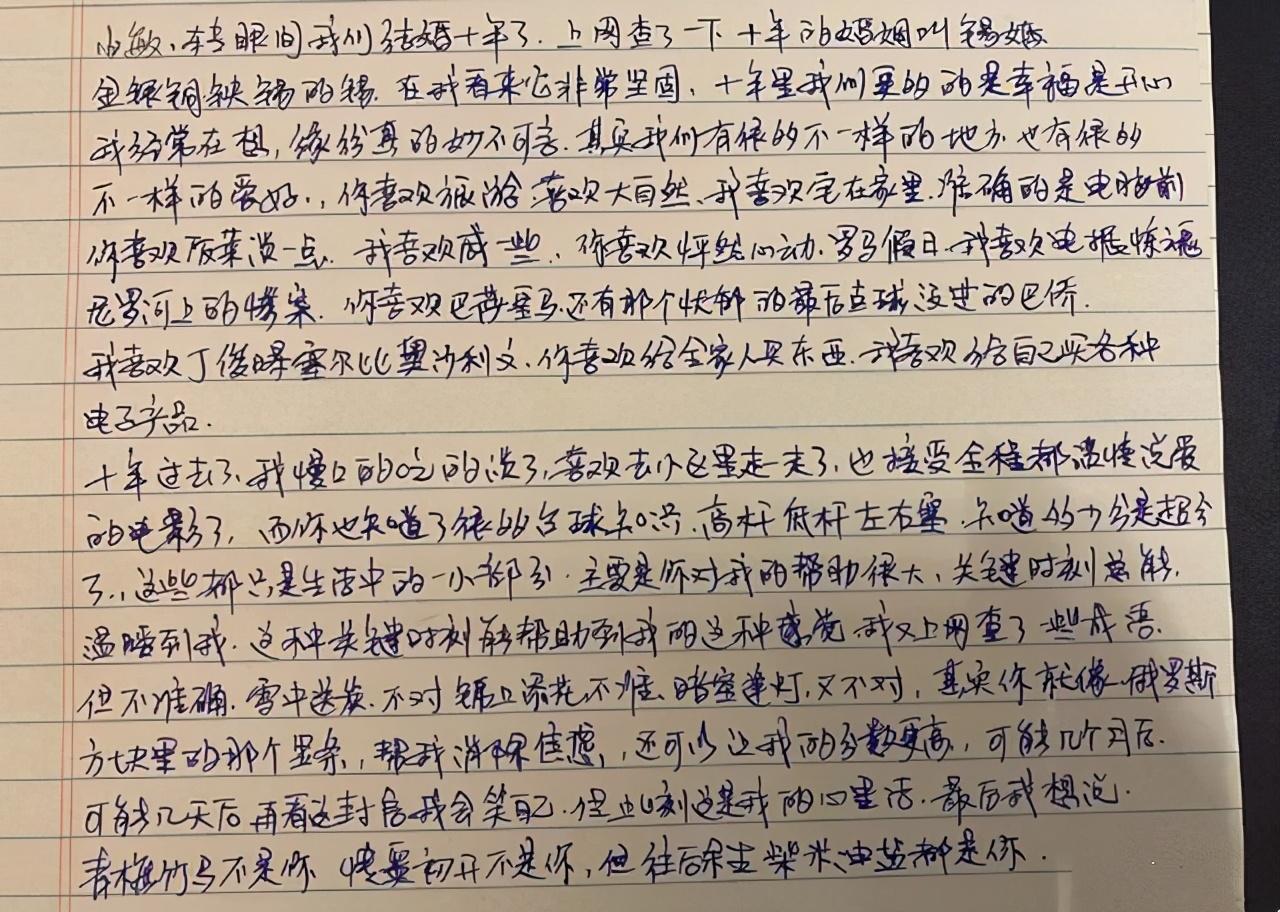 小敏、转眼间我们结婚十年了. 上网查了一下十年的婚姻叫锡婚
金银铜铁锡的锡. 在我看来它非常坚固, 十年里我们更多的是幸福是开心
我经常在想, 缘份真的妙不可言. 其实我们有很多不一样的地方也有很多
不一样的爱好., 你喜欢旅游 喜欢大自然、我喜欢宅在家里. 准确的是电脑前
你喜欢饭菜淡一点. 我喜欢咸一些. 你喜欢怦然心动. 罗马假日. 我喜欢电锯惊魂
尼罗河上的惨案. 你喜欢巴蒂星马. 还有那个忧郁的最后点球没进的巴乔.
我喜欢丁俊晖塞尔比奥沙利文. 你喜欢给全家人买东西. 我喜欢给自己买各种
电子产品.
十年过去了. 我慢慢的吃的淡了, 喜欢去小区里走一走了, 也接受全程都温情说爱
的电影了, 而你也知道了很多台球知识. 高杆低杆左右塞. 知道多少分是超分
了., 这些都只是生活中的一小部分. 主要是你对我的帮助很大、关键时刻总能.
温暖到我. 这种关键时刻能帮助到我的这种感觉. 我又上网查了一些成语.
但不准确. 雪中送炭. 不对 锦上添花不准. 暗室逢灯. 又不对, 其实你就像俄罗斯
方块里的那个竖条, 帮我消除焦虑, 还可以让我的分数更高, 可能几个月后.
可能几天后再看这封信我会笑自己. 但此刻这是我的心里话. 最后我想说.
青梅竹马不是你 情窦初开不是你, 但往后余生柴米油盐都是你.